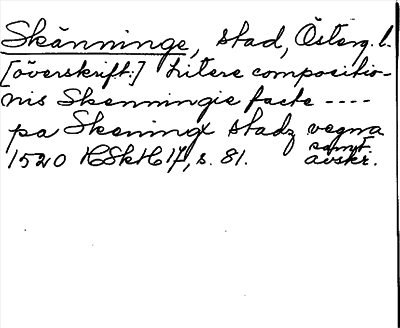 Skänninge, stad, Österg. l.
[överskrift:] Litere compositio-
nis Skenningie facte ----
pa Skeningx stadz vegna
1520 HSkH 17, s. 81. samt.
avskr.